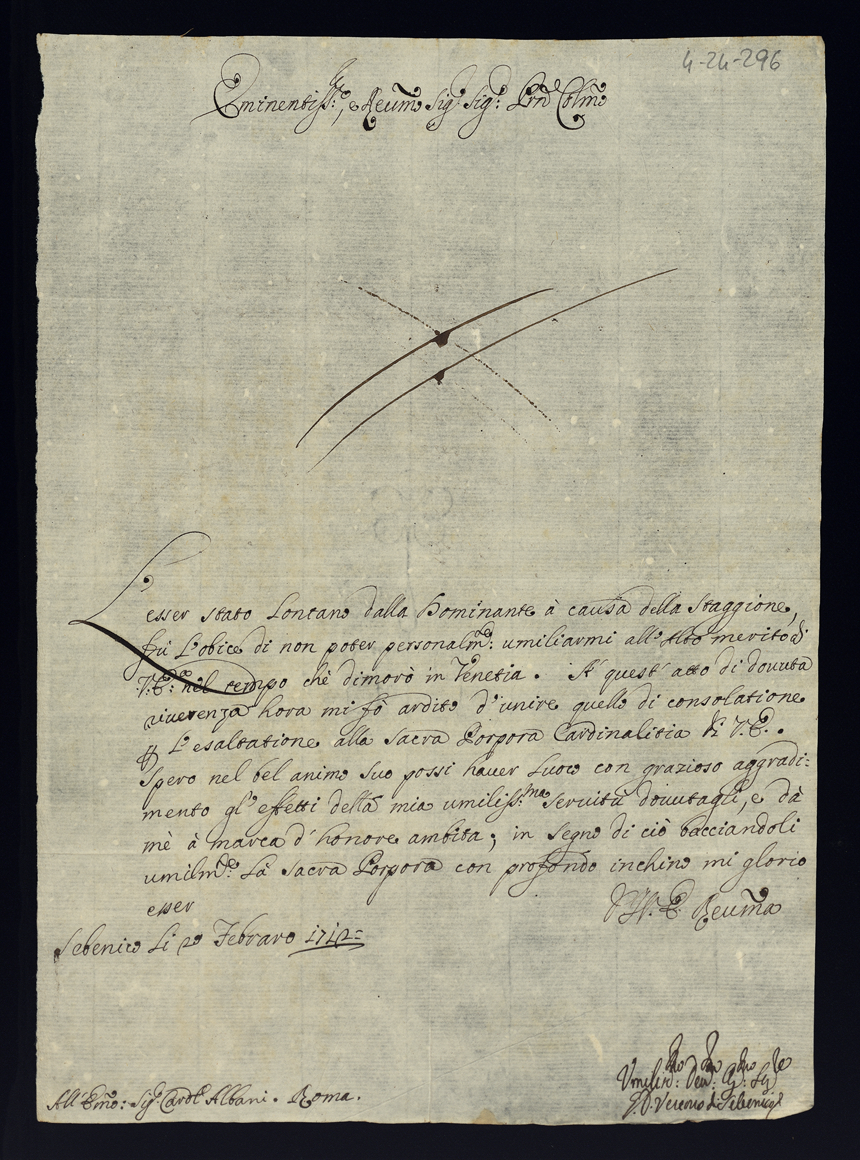 4-24-296
Eminentiss:mo, e Reu:mo Sig:r Sig:r Pron Colmo
L'esser stato lontano dalla Dominante à causa della Staggione,
fù l'obice di non poter personalm:te umiliarmi all'alto merito di
V:E: nel tempo chè dimorò in Venetia. A' quest'atto di douuta
riuerenza hora mi fò ardito d'unire quello di consolatione
L'esaltatione alla Sacra Porpora Cardinalitia di V.E.
Spero nel bel animo suo possi hauer luoco con grazioso aggradi:
mento gl'effetti della mia umiliss:ma seruitù douutagli, e dà
mè à marca d'honore ambita; in segno di ciò bacciandoli
umilm:te la Sacra Porpora con profondo inchino mi glorio
esser
D V. E. Reuma
Sebenico Li 20 Febraro 1712
Umilis:mo Deu:mo
Vescouo di Sebenico
All'Emo: Sig:r Card:l Albani. Roma.